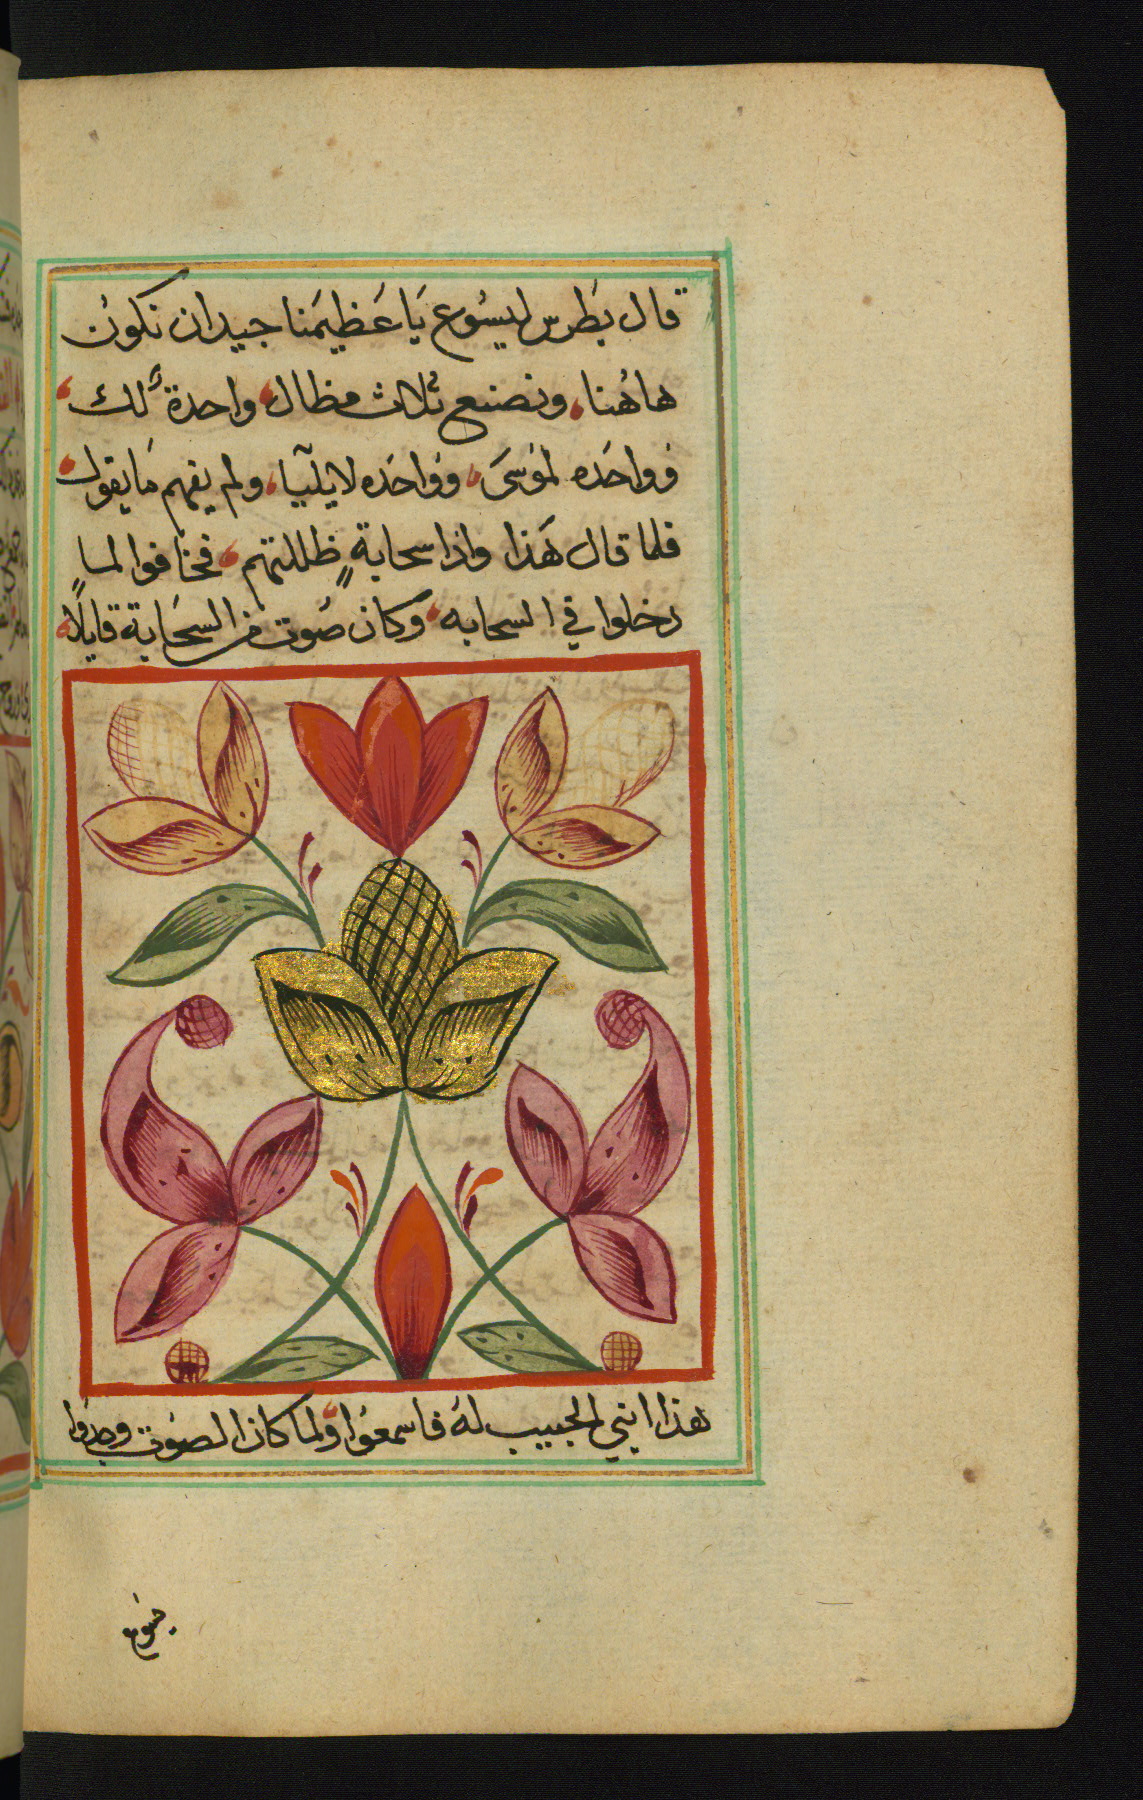 قال بَطرس ليسُوع يَا عَظيمَنا جيد ان نكونُ
هاهُنا، ونصنع ثلاث مظال، واحدة لك،
وواحَده لمُوسىَ، وواحَده لايليَّا، ولم يفهم مَا يقول،
فلما قال هَذا واذا سحابةٍ ظللتهم، فخافوا لما
دخلوا في السحابه، وكان صَوت من السحَابة قايلاً،
هذا ابني الحبيب لهُ فاسمعُوا، ولما كان الصَوت وجدُوا
يسَوع